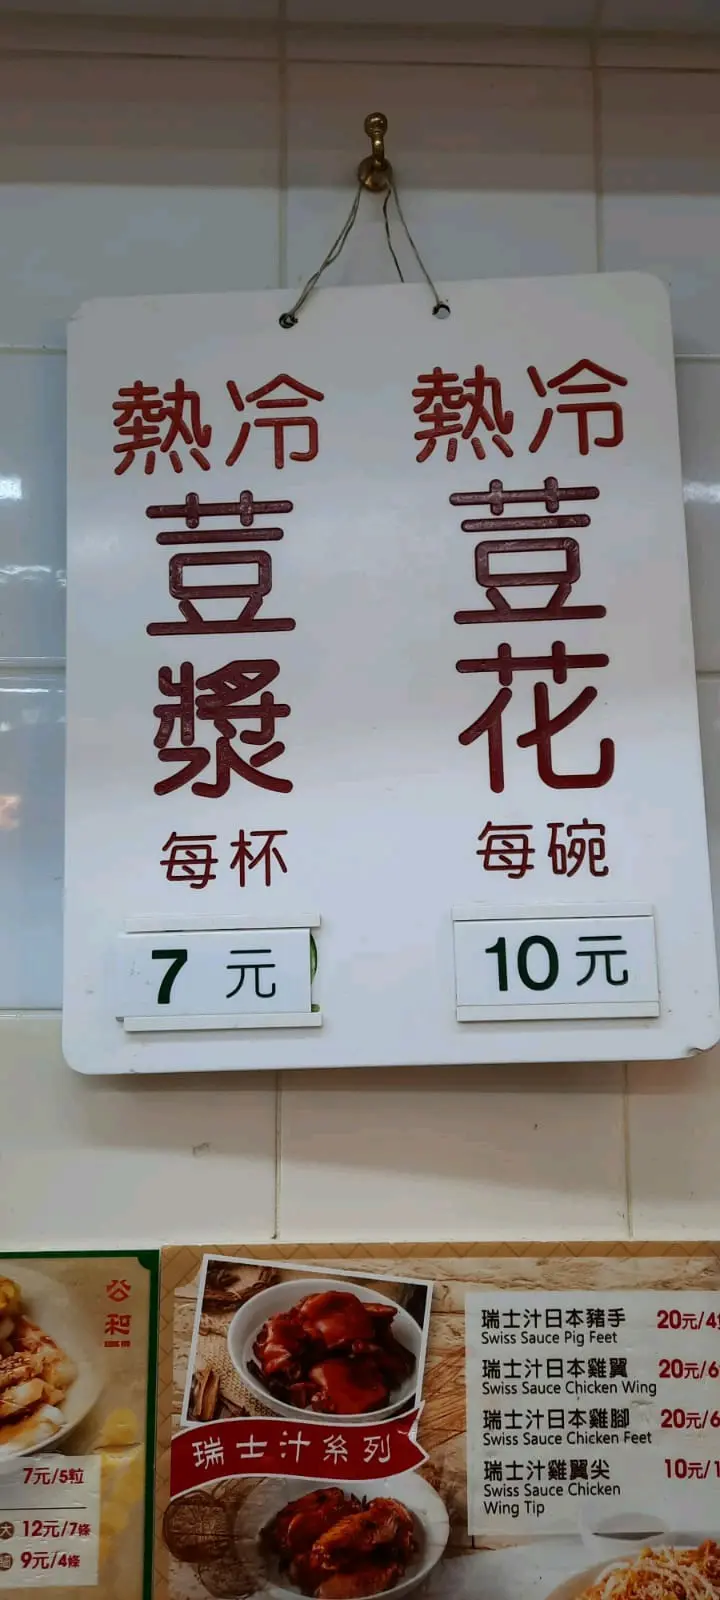 熱冷
荳
漿
每杯
7 元
熱冷
荳
花
每碗
10元
公和
7元/5粒
大 12元/7條
9元/4條
瑞士汁系列
瑞士汁日本豬手 20元/4
Swiss Sauce Pig Feet
瑞士汁日本雞翼 20元/6
Swiss Sauce Chicken Wing
瑞士汁日本雞腳 20元/6
Swiss Sauce Chicken Feet
瑞士汁雞翼尖 10元/1
Swiss Sauce Chicken
Wing Tip